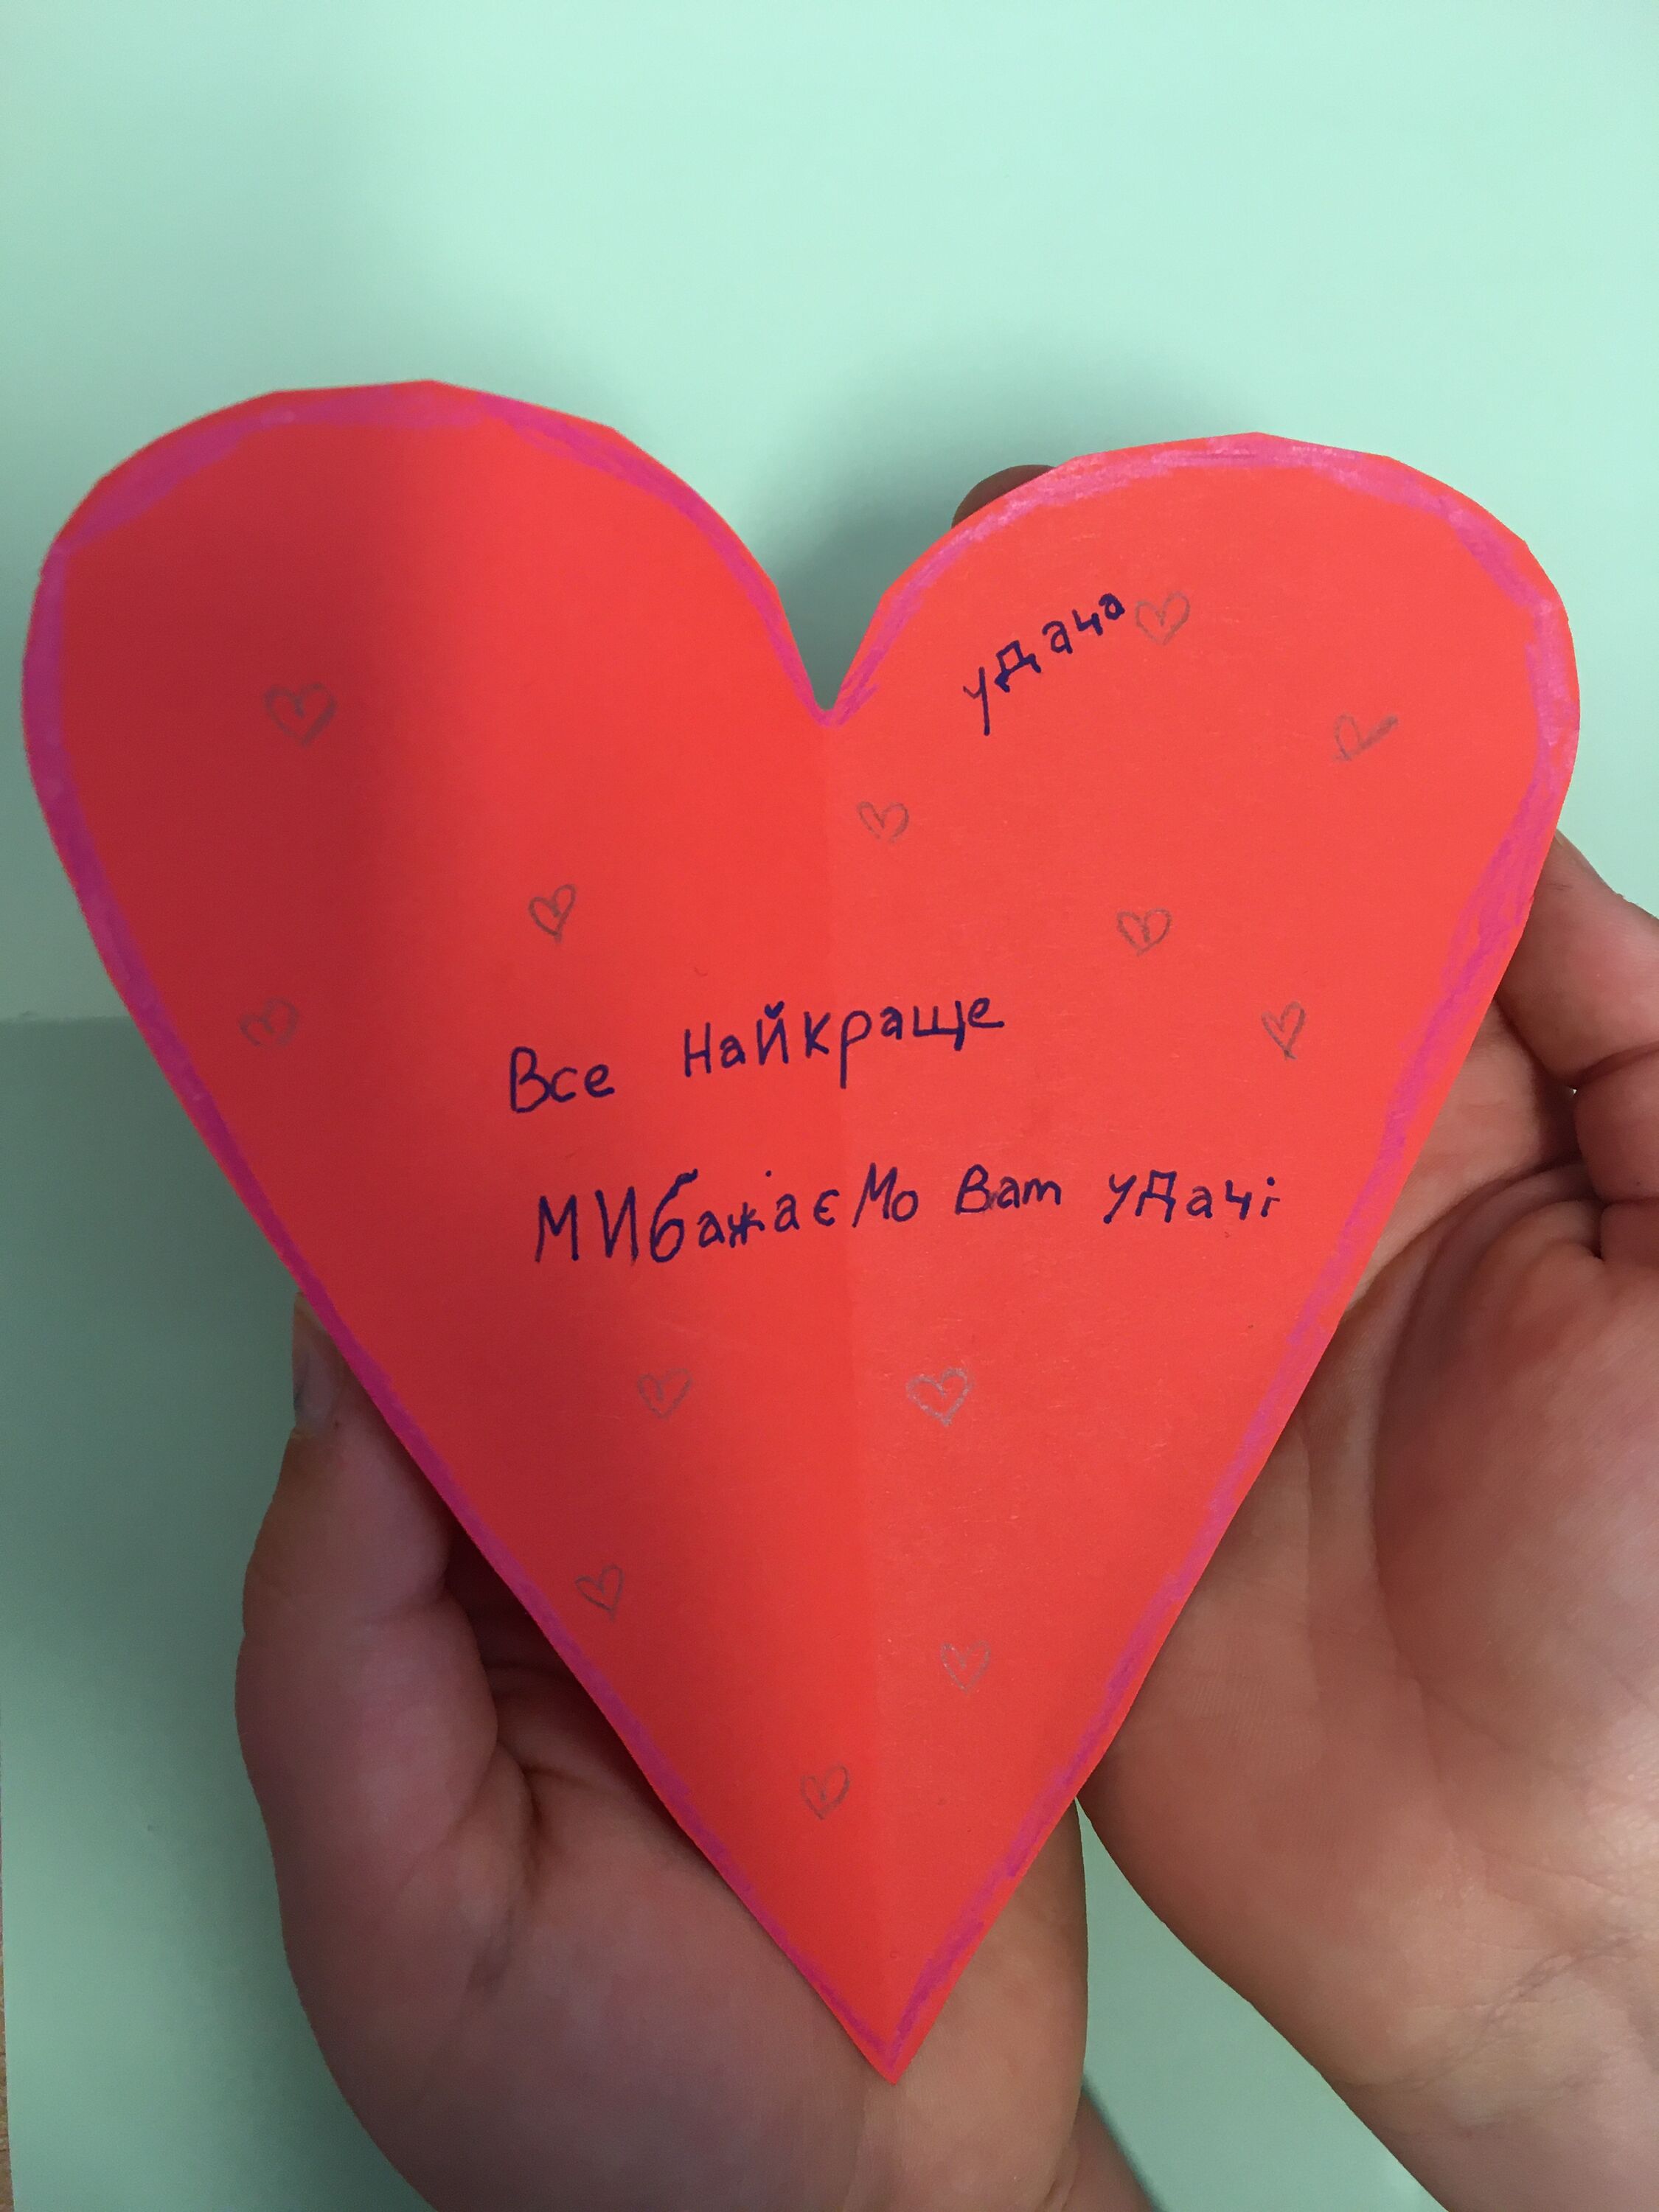 удача
Все найкраще
Ми бажаємо Вам удачі